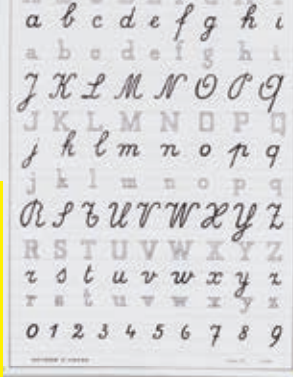 a b c d e f g h i
a b c d e f g h i
J K L M N O P Q
J K L M N O P Q
j k l m n o p q
j k l m n o p q
R S T U V W X Y Z
R S T U V W X Y Z
r s t u v w x y z
r s t u v w x y z
0 1 2 3 4 5 6 7 8 9